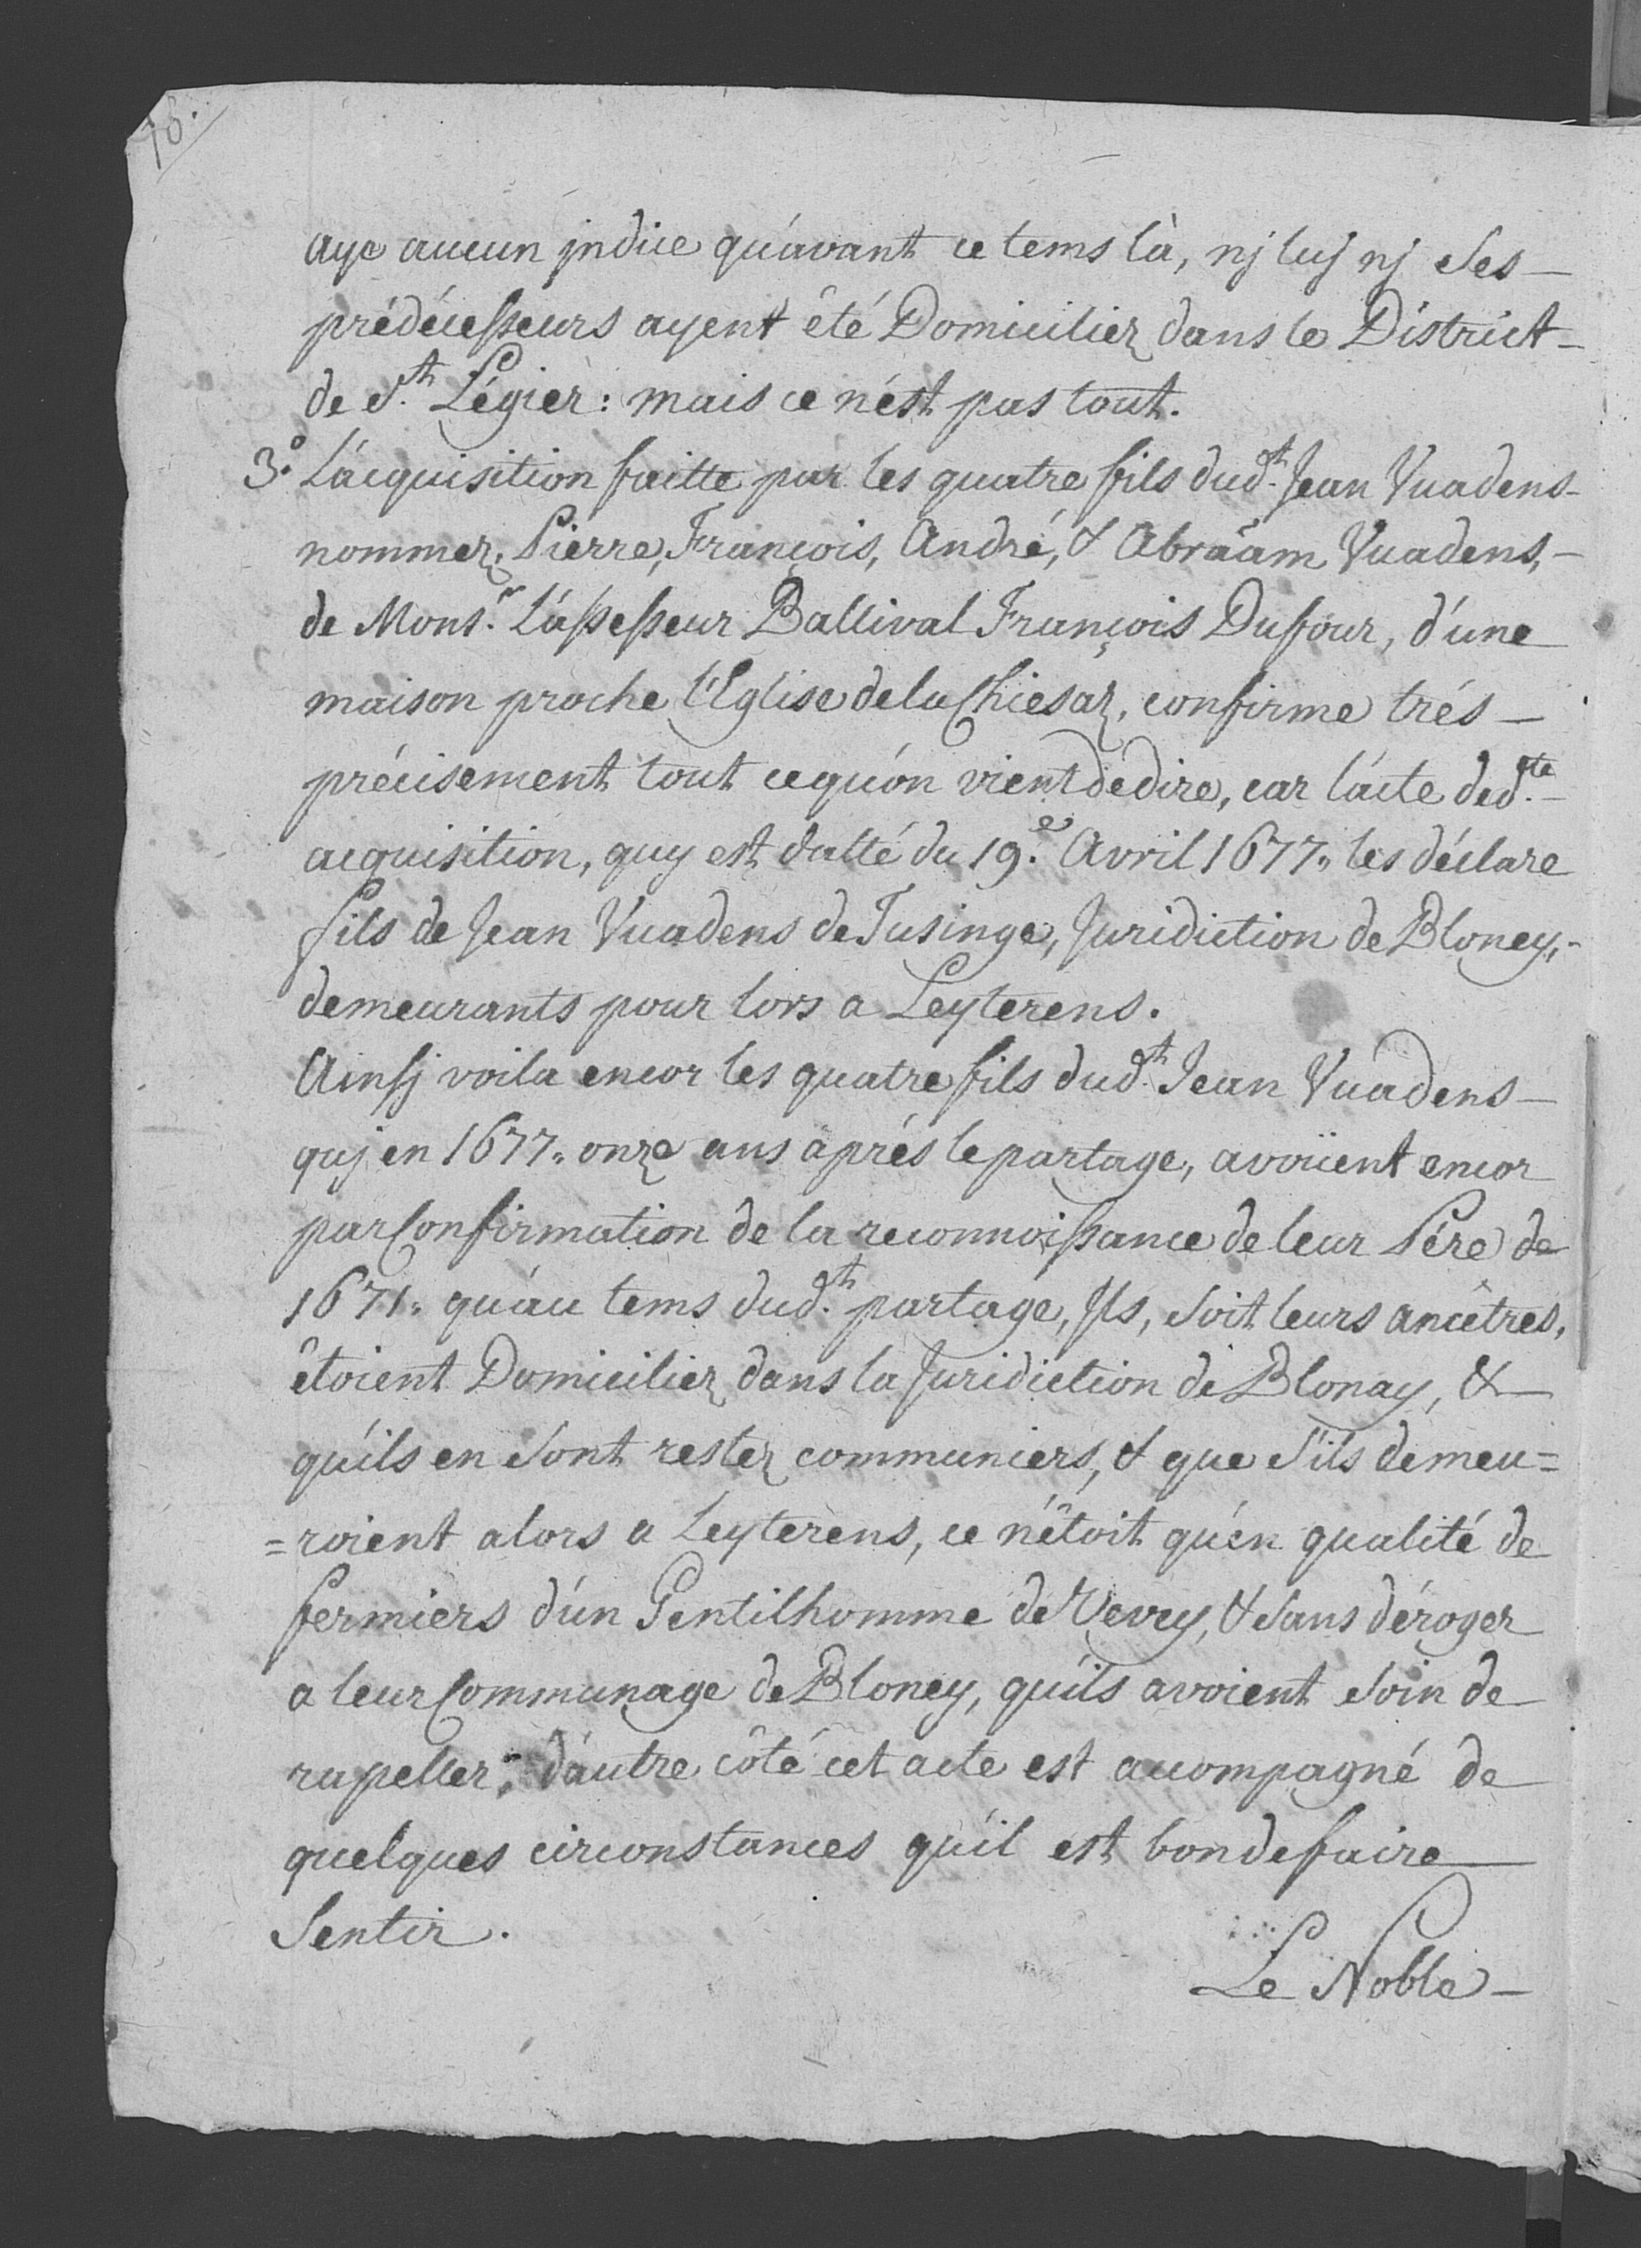 18.
aye aucun jndice qu'avant ce tems là, nj luj nj ses
prédécesseurs ayent êté Domiciliez dans le District
de S.th Légier : mais ce n'ést pas tout.
3.o L'acquisition faitte par les quatre fils dud.th Jean Vuadens
nommez, Pierre, François, André, & Abraâm Vuadens,
de Mons.r L'assesseur Ballival François Dufour, d'une
maison proche l'Eglise de la Chiesaz, confirme trés
précisement tout cequ'on vient de dire, car l'acte ded.te
acquisition, quy est datté du 19.e Avril 1677. les déclare
fils de Jean Vuadens de Tusinge, Juridiction de Bloney,
demeurants pour lors a Leyterens.
Ainsj voila encor les quatre fils dud.th Jean Vuadens
quj en 1677. onze ans aprés le partage, avoüent encor
par Confirmation de la reconnoissance de leur Pére de
1671. qu'au tems dud.th partage, Jls, soit leurs ancêtres,
êtoient Domiciliez dans la Juridiction de Blonay, &
qu'ils en sont restez communiers, & que s'ils demeu=
=roient alors a Leyterens, ce n'étoit qu'en qualité de
fermiers d'un Gentilhomme de Vevey, & sans déroger
a leur Communage de Bloney, qu'ils avoient soin de
rapeller; d'autre côté cet acte est acompagné de
quelques circonstances qu'il est bon de faire
Sentir.
Le Noble